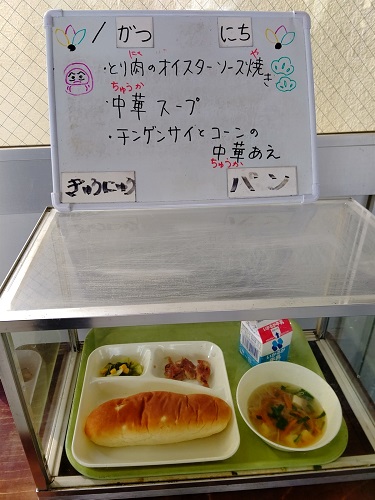 / がつ にち
・とり肉のオイスターソース焼き
にく や
・中華スープ
ちゅうか
・チンゲンサイとコーンの
中華あえ
ちゅうか
ぎゅうにゅう パン